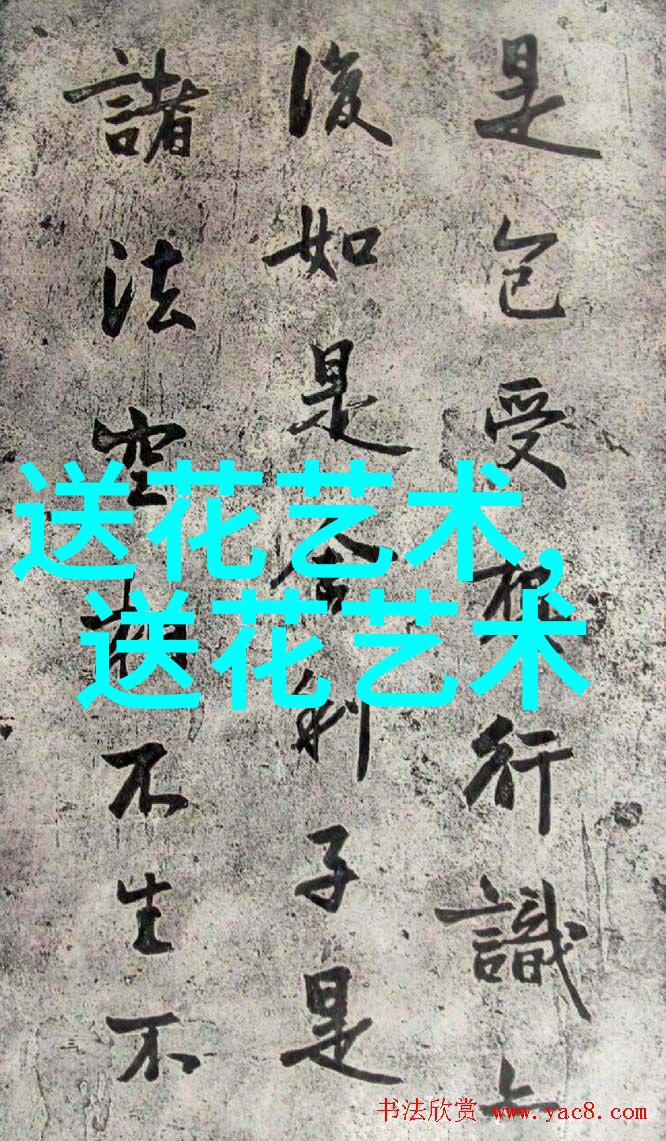 是色受想行識
復如是舍利子是
諸法空相不生不
送花艺术,
送花艺术
书法欣赏 www.yac8.com